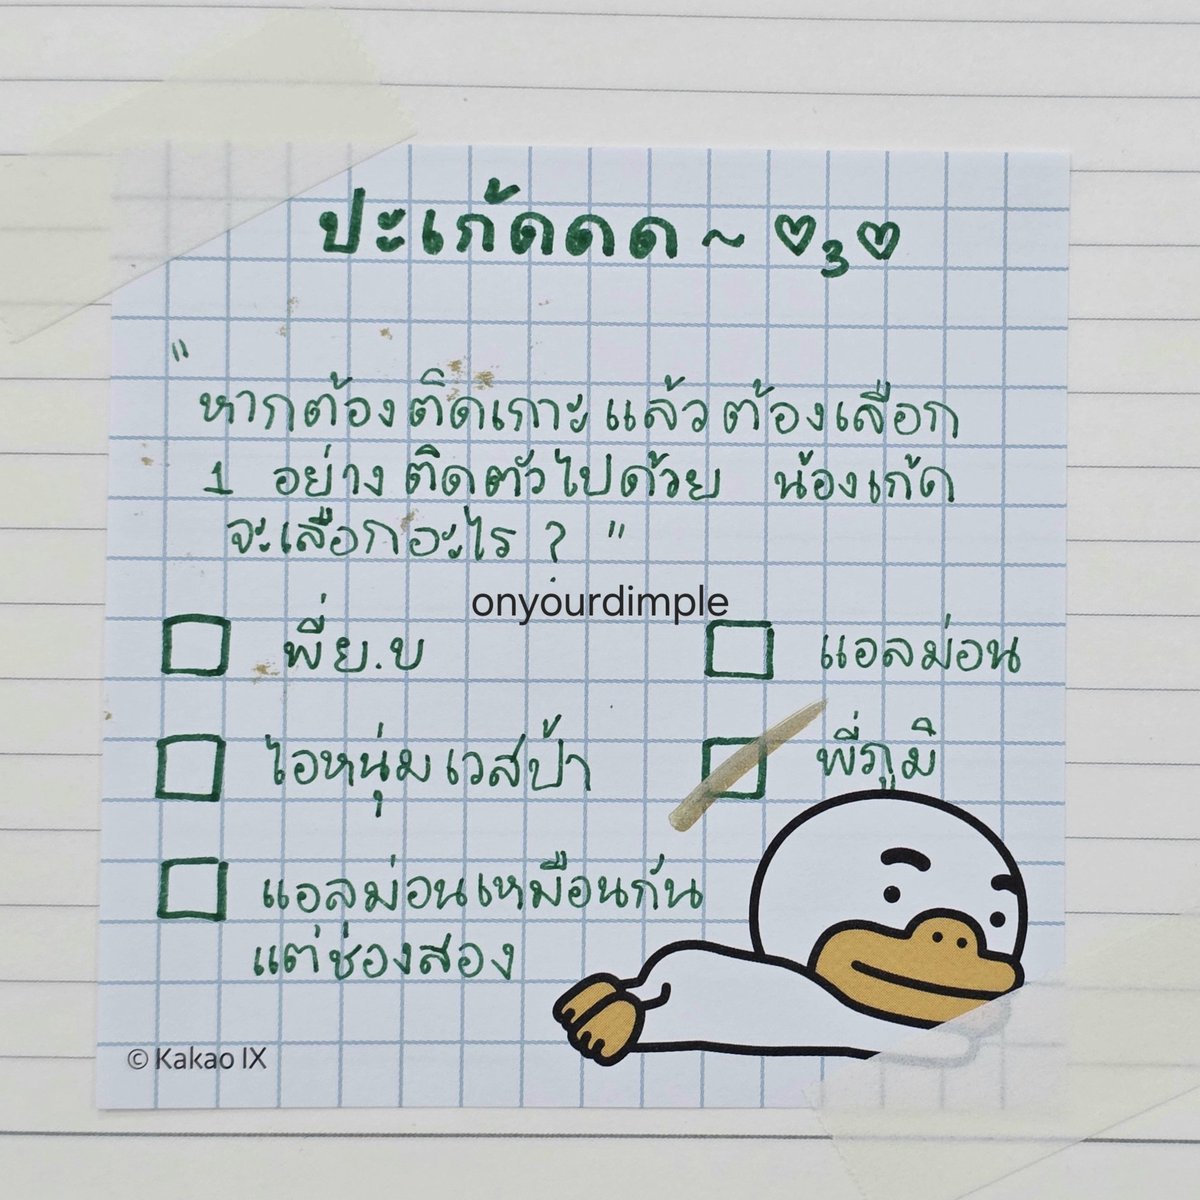 ปะเก้ดดด ~ ♡3♡
"
หากต้องติดเกาะแล้วต้องเลือก
1 อย่างติดตัวไปด้วย น้องเก้ด
จะเลือกอะไร ? "
onyourdimple
พี่ย.บ
แอลม่อน
ไอหนุ่มเวสป้า
พี่ภูมิ
แอลม่อนเหมือนกัน
แต่ช่องสอง
© Kakao IX